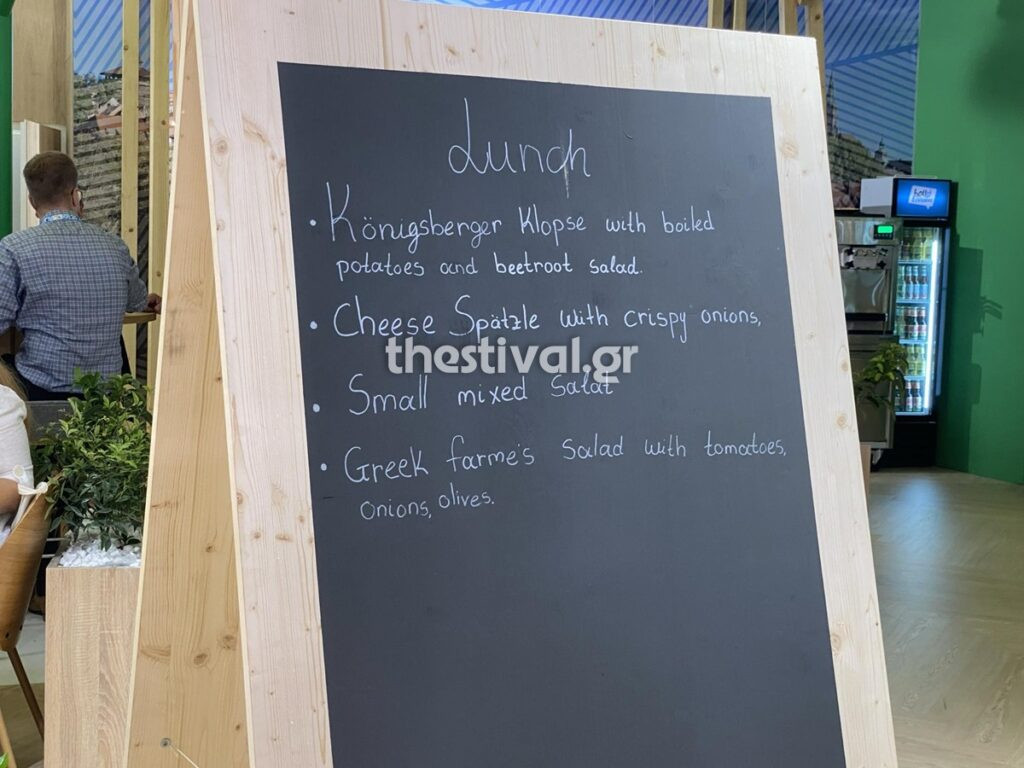 Lunch
• Königsberger Klopse with boiled
potatoes and beetroot salad.
• Cheese Spätzle with crispy onions,
thestival.gr
• Small mixed Salat
• Greek farme's Salad with tomatoes,
onions, olives.